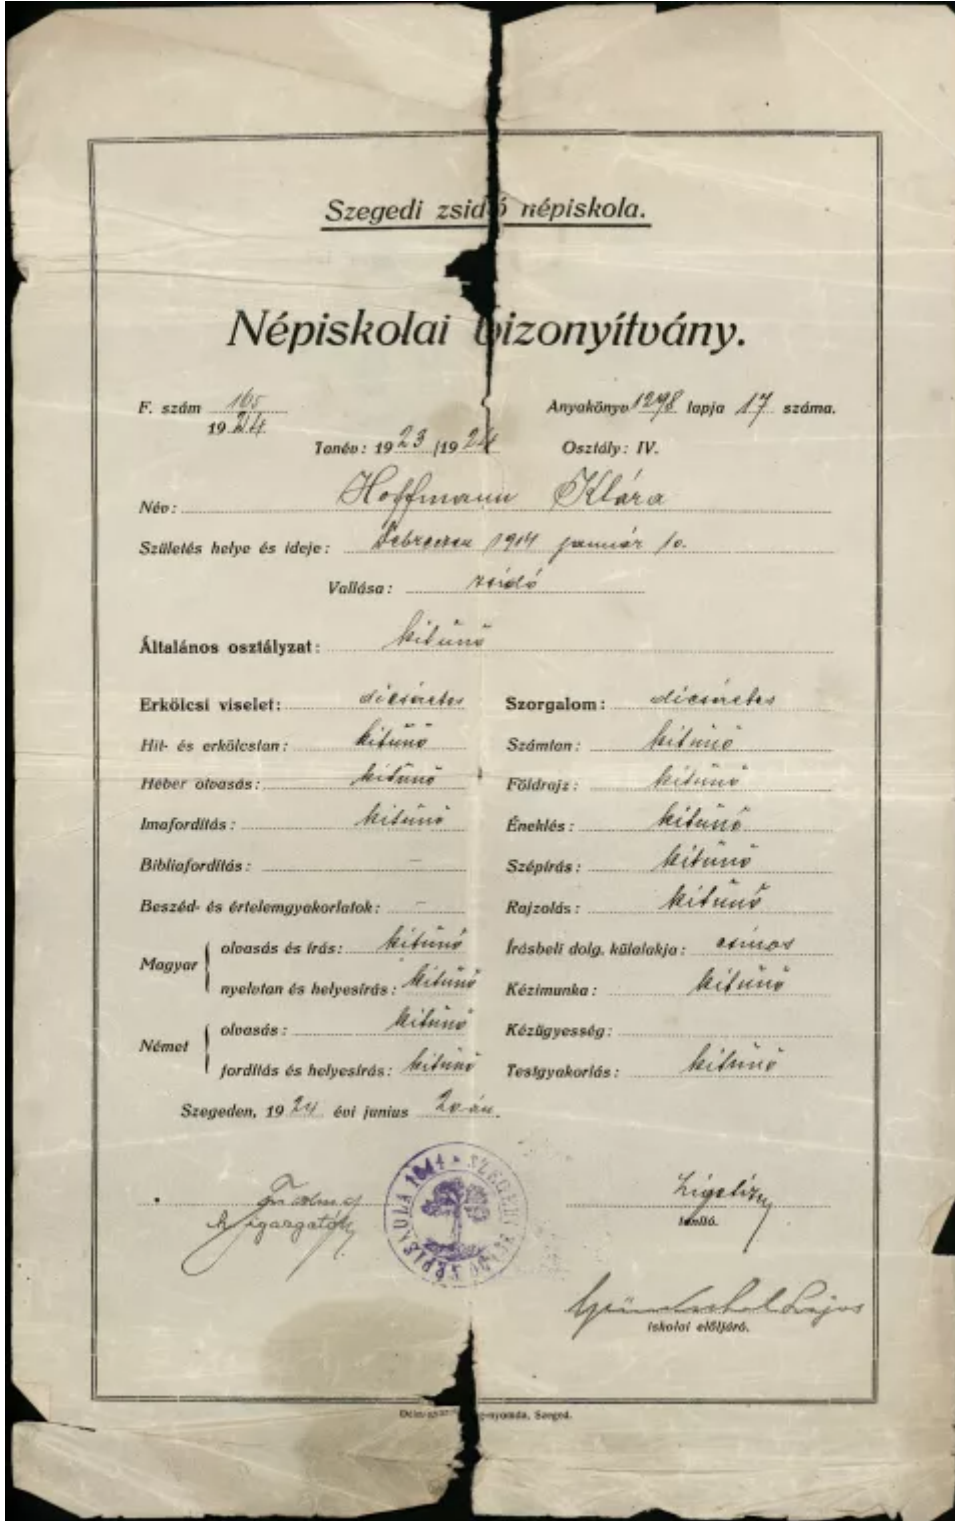 Szegedi zsidó népiskola.
Népiskolai bizonyítvány.
F. szám 165
1924
Anyakönyv 1298 lapja 17 száma.
Tanév: 1923/1924 Osztály: IV.
Név: Hoffmann Klára
Születés helye és ideje: Debreczen 1914 január 10.
Vallása: zsidó
Általános osztályzat: kitünő
Erkölcsi viselet: dicséretes
Hit- és erkölcstan: kitünő
Héber olvasás: kitünő
Imafordítás: kitünő
Bibliafordítás: —
Beszéd- és értelemgyakorlatok: —
Magyar
olvasás és írás: kitünő
nyelvtan és helyesírás: kitünő
Német
olvasás: kitünő
fordítás és helyesírás: kitünő
Szorgalom: dicséretes
Számtan: kitünő
Földrajz: kitünő
Éneklés: kitünő
Szépírás: kitünő
Rajzolás: kitünő
Írásbeli dolg. külalakja: csinos
Kézimunka: kitünő
Kézügyesség:
Testgyakorlás: kitünő
Szegeden, 1924 évi junius 20-án.
igazgató
SZEGEDI ZSIDÓ NÉPISKOLA 1844
tanító.
Lajos
iskolai elöljáró.
Szeged.